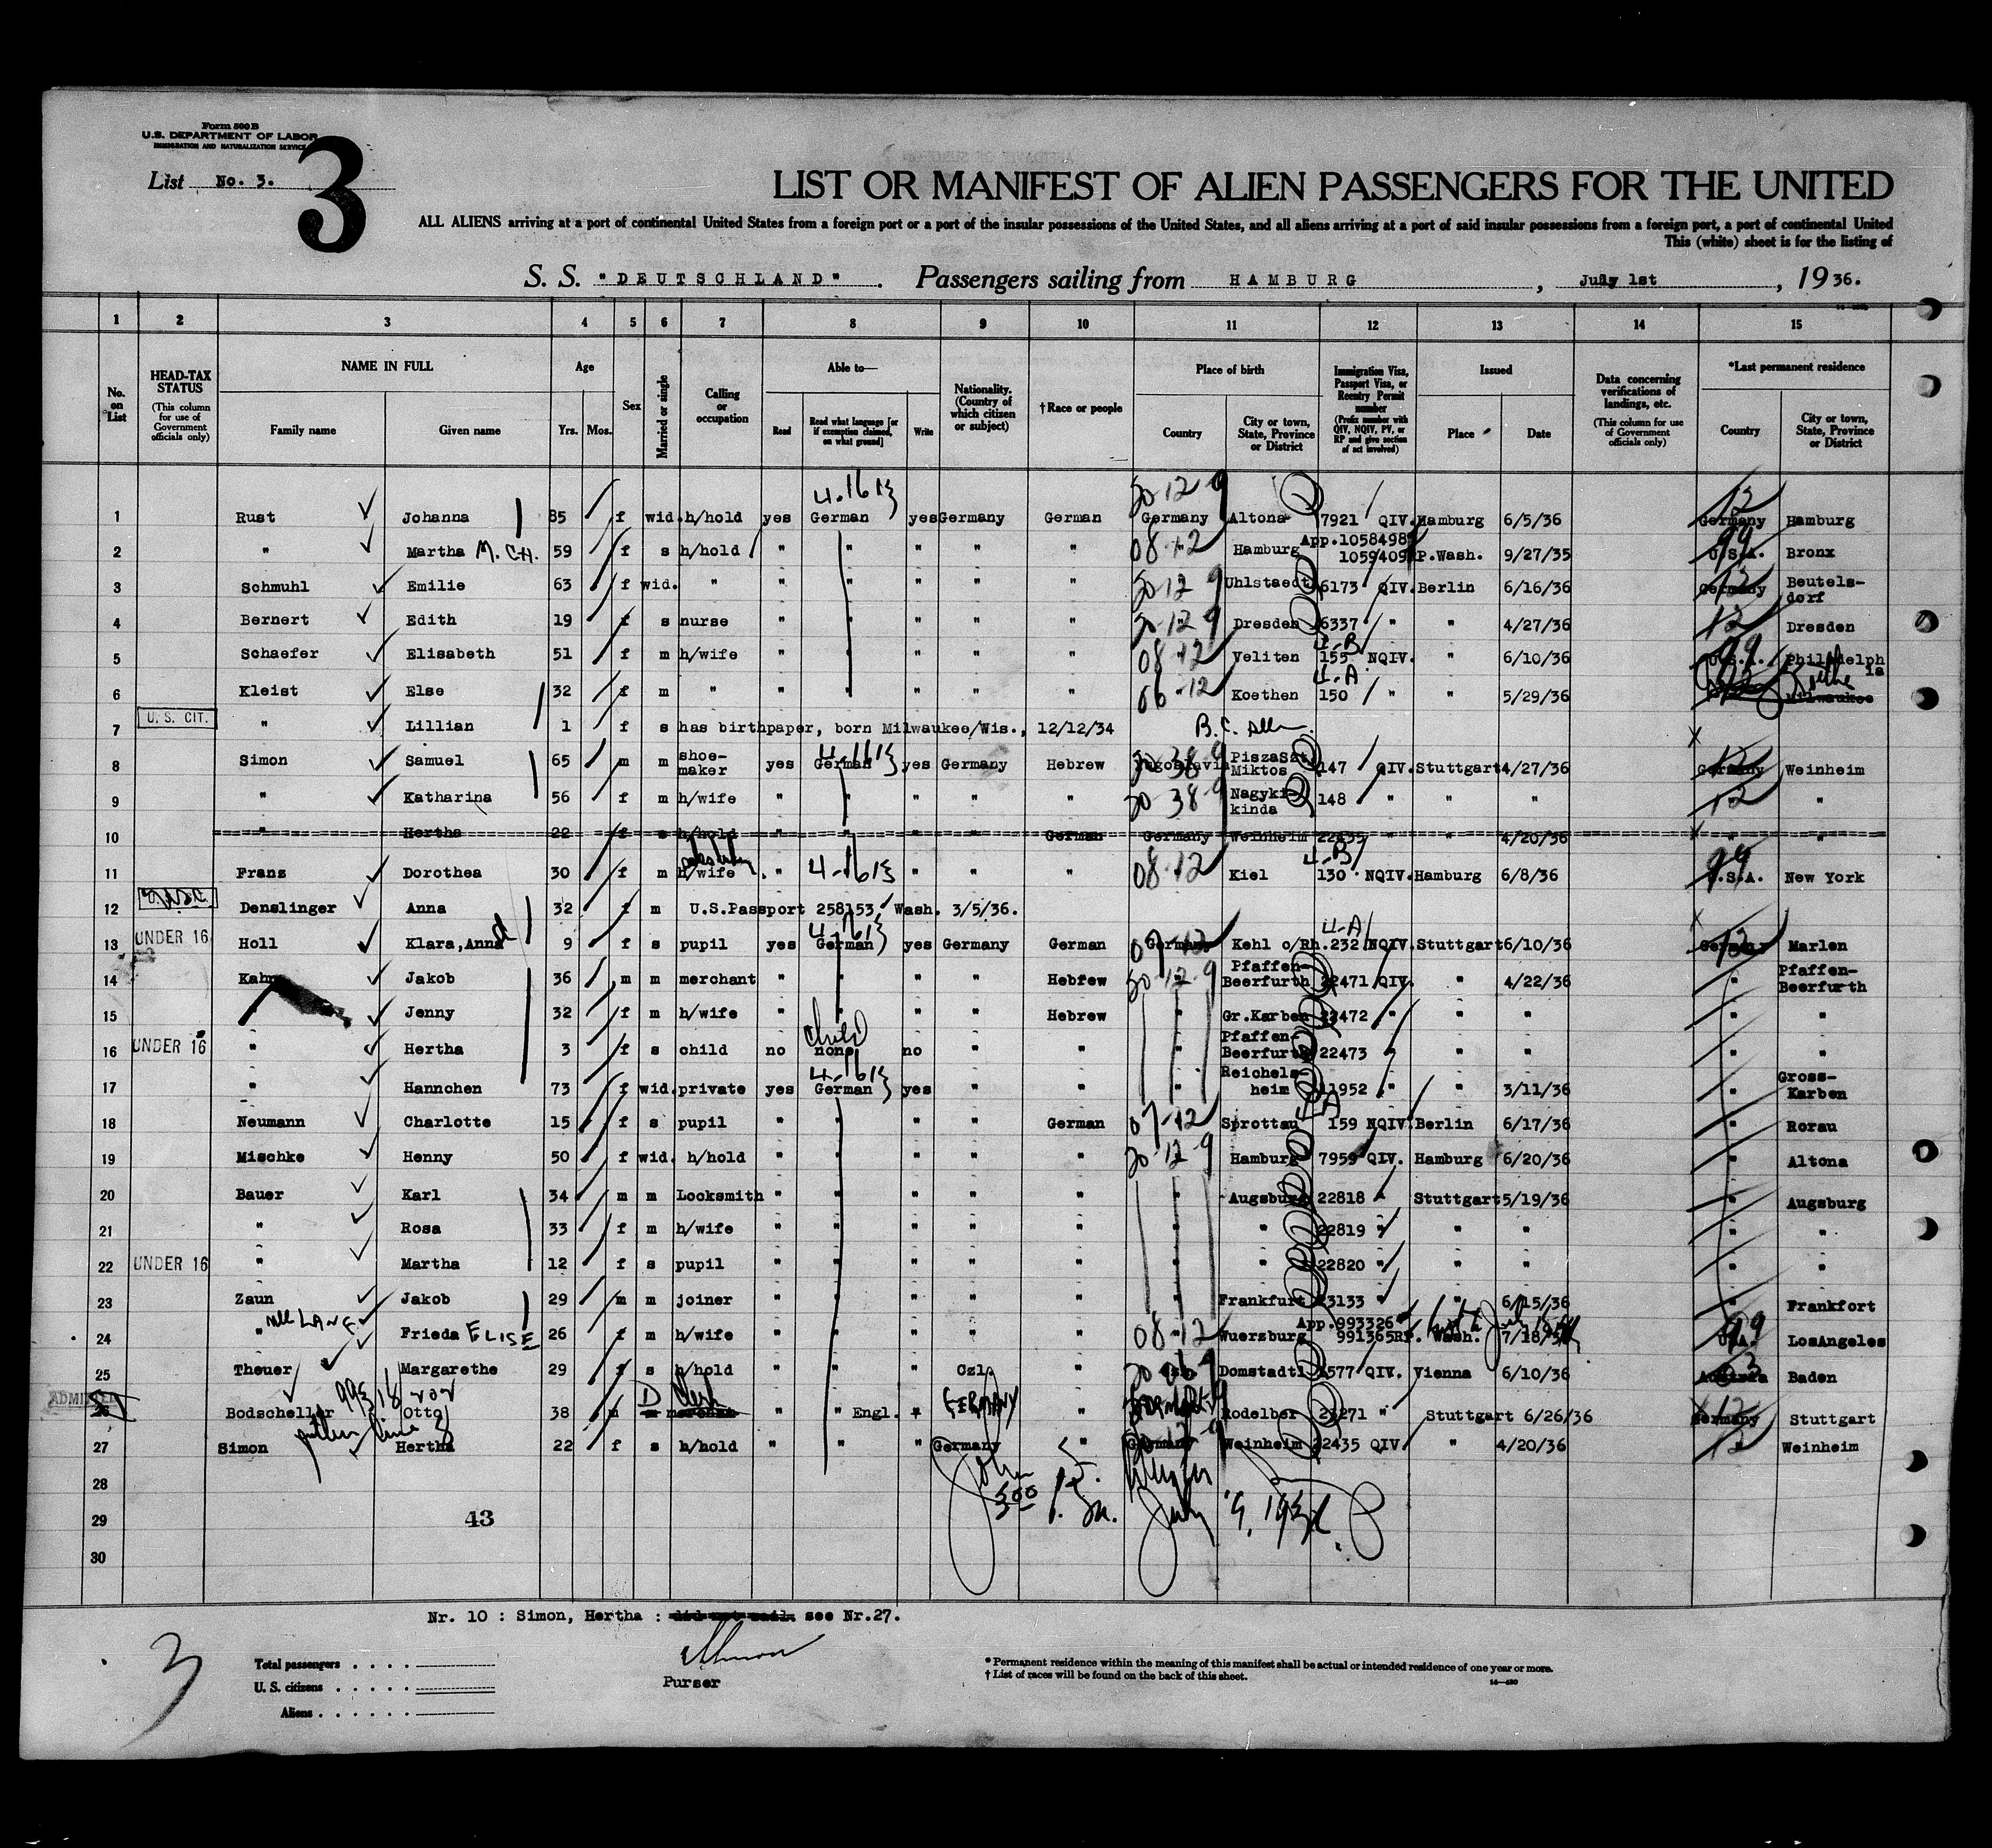 Form 500 B
U.S. DEPARTMENT OF LABOR
IMMIGRATION AND NATURALIZATION SERVICE
3
List No. 3.
LIST OR MANIFEST OF ALIEN PASSENGERS FOR THE UNITED
ALL ALIENS arriving at a port of continental United States from a foreign port or a port of the insular possessions of the United States, and all aliens arriving at a port of said insular possessions from a foreign port, a port of continental United
This (white) sheet is for the listing of
S. S. "DEUTSCHLAND". Passengers sailing from HAMBURG, July 1st, 1936.
1 2 3 4 5 6 7 8 9 10 11 12 13 14 15
No. on List
HEAD-TAX STATUS (This column for use of Government officials only)
NAME IN FULL Family name Given name
Age Yrs. Mos.
Sex
Married or single
Calling or occupation
Able to— Read Read what language [or if exemption claimed, on what ground] Write
Nationality. (Country of which citizen or subject)
†Race or people
Place of birth Country City or town, State, Province or District
Immigration Visa, Passport Visa, or Reentry Permit number (Prefix number with QIV, NQIV, PV, or RP and give section of act involved)
Issued Place Date
Data concerning verifications of landings, etc. (This column for use of Government officials only)
*Last permanent residence Country City or town, State, Province or District
4-1613 30-12-9 12
1 Rust Johanna 85 f wid. h/hold yes German yes Germany German Germany Altona 7921 QIV. Hamburg 6/5/36 Germany Hamburg
2 " Martha M. CH. 59 f s h/hold " " " " " 08-12 Hamburg App.1058498 1059409 RP.Wash. 9/27/35 99 U.S.A. Bronx
3 Schmuhl Emilie 63 f wid. " " " " " " 30-12 9 Uhlstaedt 6173 QIV. Berlin 6/16/36 Germany 12 Beutels-dorf
4 Bernert Edith 19 f s nurse " " " " " 30-12 9 Dresden 6337 " " 4/27/36 12 Dresden
5 Schaefer Elisabeth 51 f m h/wife " " " " " 08-12 Velten 4-B 155 NQIV. " 6/10/36 99 U.S.A. Philadelphia
6 Kleist Else 32 f m " " " " " " 06-12 Koethen 4-A 150 " " 5/29/36 Koethe Milwaukee
7 U.S. CIT. " Lillian 1 f s has birthpaper, born Milwaukee/Wis., 12/12/34 B.C.
8 Simon Samuel 65 m m shoe-maker yes German 4-1613 yes Germany Hebrew Yugoslavia 30-38-9 PiszaSzt. Miktos 147 QIV. Stuttgart 4/27/36 Germany 12 Weinheim
9 " Katharina 56 f m h/wife " " " " " 30-38-9 Nagyki-kinda 148 " " " 12 "
10 " Hertha 22 f s h/hold " " " " German Germany Weinheim 22435 " " 4/20/36 " "
11 Franz Dorothea 30 f m h/wife " 4-1613 " " " 08-12 Kiel 4-B 130 NQIV. Hamburg 6/8/36 99 U.S.A. New York
12 Denslinger Anna 32 f m U.S.Passport 258153, Wash. 3/5/36.
13 UNDER 16 Holl Klara, Anna 9 f s pupil yes German 4-1613 yes Germany German 07-12 Germany Kehl o/Rh. 4-A 232 NQIV. Stuttgart 6/10/36 Germany 12 Marlen
14 Kahn Jakob 36 m m merchant " " " " Hebrew 30-12-9 " Pfaffen-Beerfurth 22471 QIV. " 4/22/36 " Pfaffen-Beerfurth
15 " Jenny 32 f m h/wife " " " " Hebrew " Gr.Karben 22472 " " " " "
16 UNDER 16 " Hertha 3 f s child no child none no " " " Pfaffen-Beerfurth 22473 " " " " "
17 " Hannchen 73 f wid. private yes German 4-1613 yes " " " Reichels-heim 11952 " " 3/11/36 " Gross-Karben
18 Neumann Charlotte 15 f s pupil " " " " German 07-12 Sprottau 4-A 159 NQIV. Berlin 6/17/36 " Rorau
19 Mischke Henny 50 f wid. h/hold " " " " " 30-12-9 Hamburg 7959 QIV. Hamburg 6/20/36 " Altona
20 Bauer Karl 34 m m Locksmith " " " " " " Augsburg 22818 " Stuttgart 5/19/36 " Augsburg
21 " Rosa 33 f m h/wife " " " " " " " 22819 " " " " "
22 UNDER 16 " Martha 12 f s pupil " " " " " " " 22820 " " " " "
23 Zaun Jakob 29 m m joiner " " " " " " Frankfurt 23133 " " 6/15/36 " Frankfort
24 " nee LANG Frieda ELISE 26 f m h/wife " " " " " 08-12 Wuersburg App.993326 991365 RP. Wash. 99 U.S.A. LosAngeles
25 Theuer Margarethe 29 f s h/hold " " " Czl. " Domstadtl 1577 QIV. Vienna 6/10/36 Austria Baden
26 ADMITTED Bodscheller Otto 38 m D m Clerk merchant " " Engl. " GERMANY " GERMANY Rodelber 23271 " Stuttgart 6/26/36 Germany 12 Stuttgart
27 Simon Hertha 22 f s h/hold " " " Germany " Germany Weinheim 22435 QIV " 4/20/36 12 " Weinheim
28
29 43
30
John
July 9, 1936
Nr. 10 : Simon, Hertha : did not sail. see Nr.27.
3
Total passengers . . . .
U. S. citizens . . . . .
Aliens . . . . . .
Purser
* Permanent residence within the meaning of this manifest shall be actual or intended residence of one year or more.
† List of races will be found on the back of this sheet.
14—430